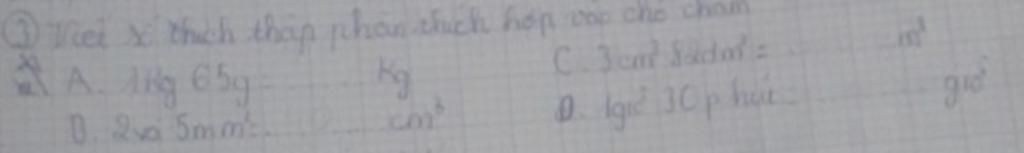 ① Viết số thích thập phân thích hợp vào chỗ chấm
A. 1kg 65g = kg C. 3cm³ dm³ = m³
B. 2 và 5mm³ = cm³ D. 1giờ 30phút = giờ